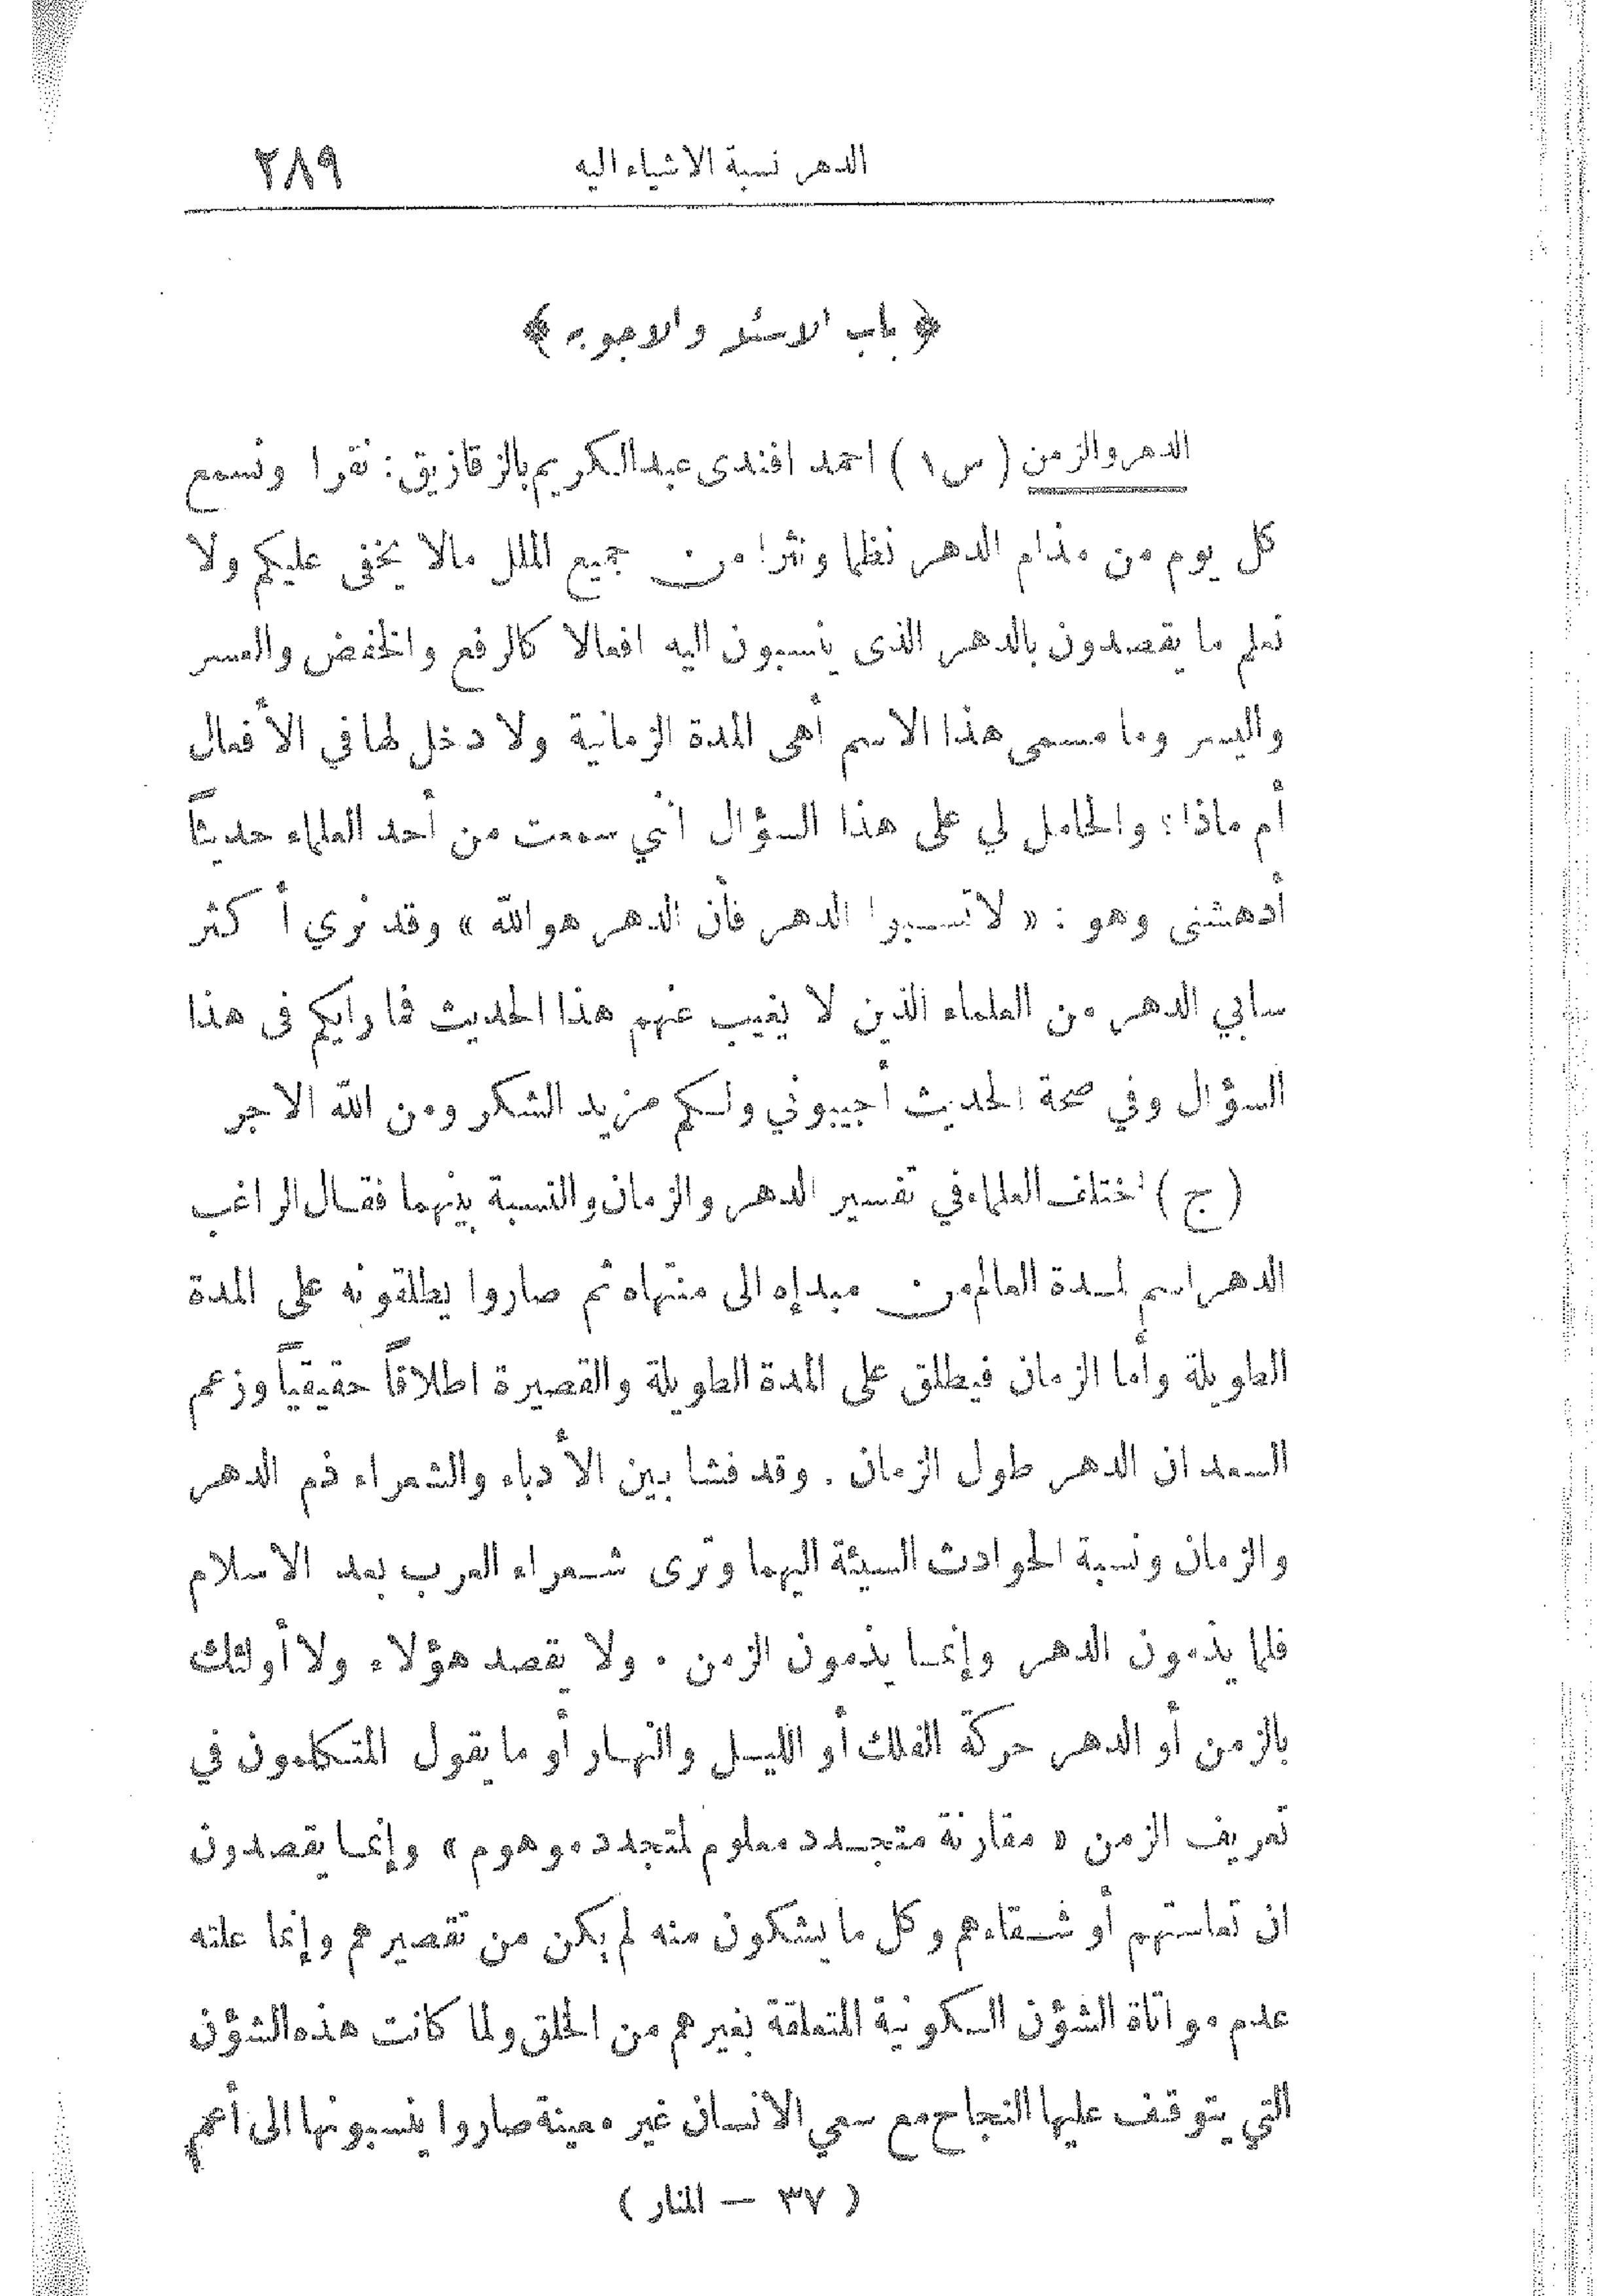 الدهر نسبة الاشياء اليه ٢٨٩
﴿ باب الاسئلة والاجوبة ﴾
الدهر والزمن ( س ١ ) احمد افندى عبد الكريم بالزقازيق : نقرا ونسمع
كل يوم من مذام الدهر نظما ونثرا من جميع الملل مالا يخفى عليكم ولا
نعلم ما يقصدون بالدهر الذى ينسبون اليه افعالا كالرفع والخفض والعسر
واليسر وما مسمى هذا الاسم أهى المدة الزمانية ولا دخل لها في الأفعال
أم ماذا ؟ والحامل لي على هذا السؤال أني سمعت من أحد العلماء حديثاً
أدهشنى وهو : « لا تسبوا الدهر فأن الدهر هو الله » وقد نري أكثر
سابي الدهر من العلماء الذين لا يغيب عنهم هذا الحديث فما رايكم فى هذا
السؤال وفي صحة الحديث أجيبوني ولكم مزيد الشكر ومن الله الاجر
( ج ) اختلف العلماء في تفسير الدهر والزمان والنسبة بينهما فقال الراغب
الدهر اسم لمدة العالم من مبدإه الى منتهاه ثم صاروا يطلقونه على المدة
الطويلة وأما الزمان فيطلق على المدة الطويلة والقصيرة اطلاقاً حقيقياً وزعم
السعد ان الدهر طول الزمان . وقد فشا بين الأدباء والشعراء ذم الدهر
والزمان ونسبة الحوادث السيئة اليهما وترى شعراء العرب بعد الاسلام
قلما يذمون الدهر وإنما يذمون الزمن . ولا يقصد هؤلاء ولا أولئك
بالزمن أو الدهر حركة الفلك أو الليل والنهار أو ما يقول المتكلمون في
تعريف الزمن « مقارنة متجدد معلوم لمتجدد موهوم » وإنما يقصدون
ان تعاستهم أو شقاءهم وكل ما يشكون منه لم يكن من تقصيرهم وإنما علته
عدم مواتاة الشؤن الكونية المتعلقة بغيرهم من الخلق ولما كانت هذه الشؤن
التي يتوقف عليها النجاح مع سعي الانسان غير معينة صاروا ينسبونها الى أعم
( ٣٧ — المنار )